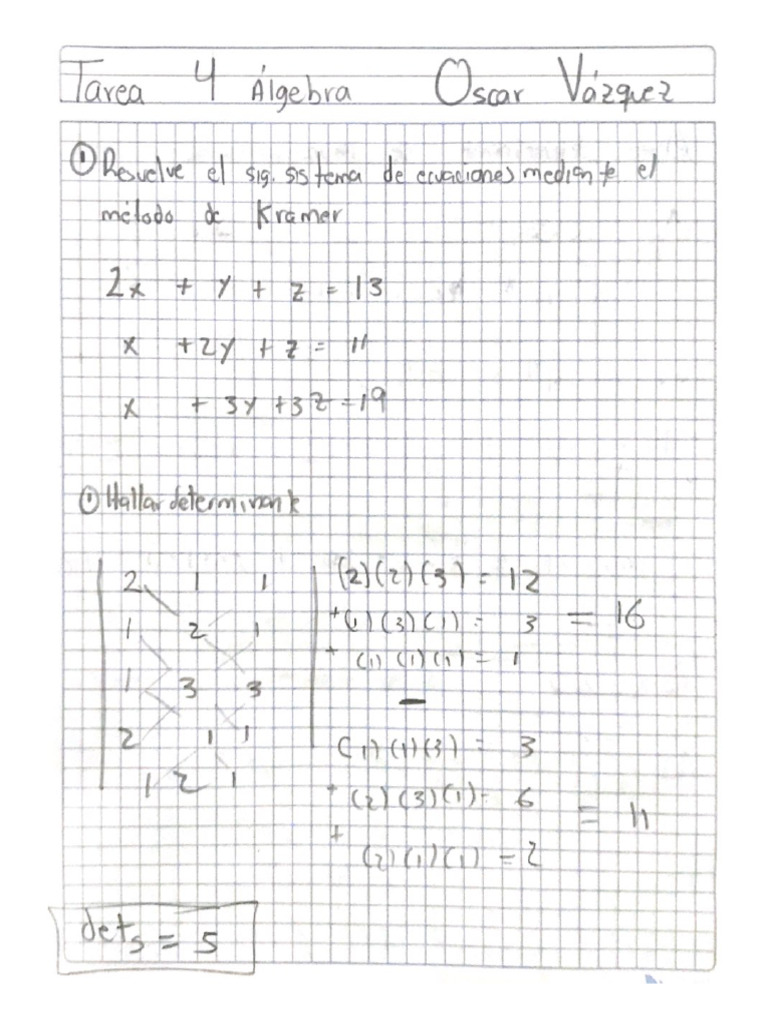 Tarea 4 Álgebra Oscar Vázquez
① Resuelve el sig. sistema de ecuaciones mediante el
método de Kramer
2x + y + z = 13
x + 2y + z = 11
x + 3y + 3z = 19
① Hallar determinante
2 1 1 (2)(2)(3) = 12
1 2 1 + (1)(3)(1) = 3 = 16
+ (1)(1)(1) = 1
1 3 3
−
2 1 1 (1)(1)(3) = 3
1 2 1 + (2)(3)(1) = 6 = 11
+ (2)(1)(1) = 2
dets = 5